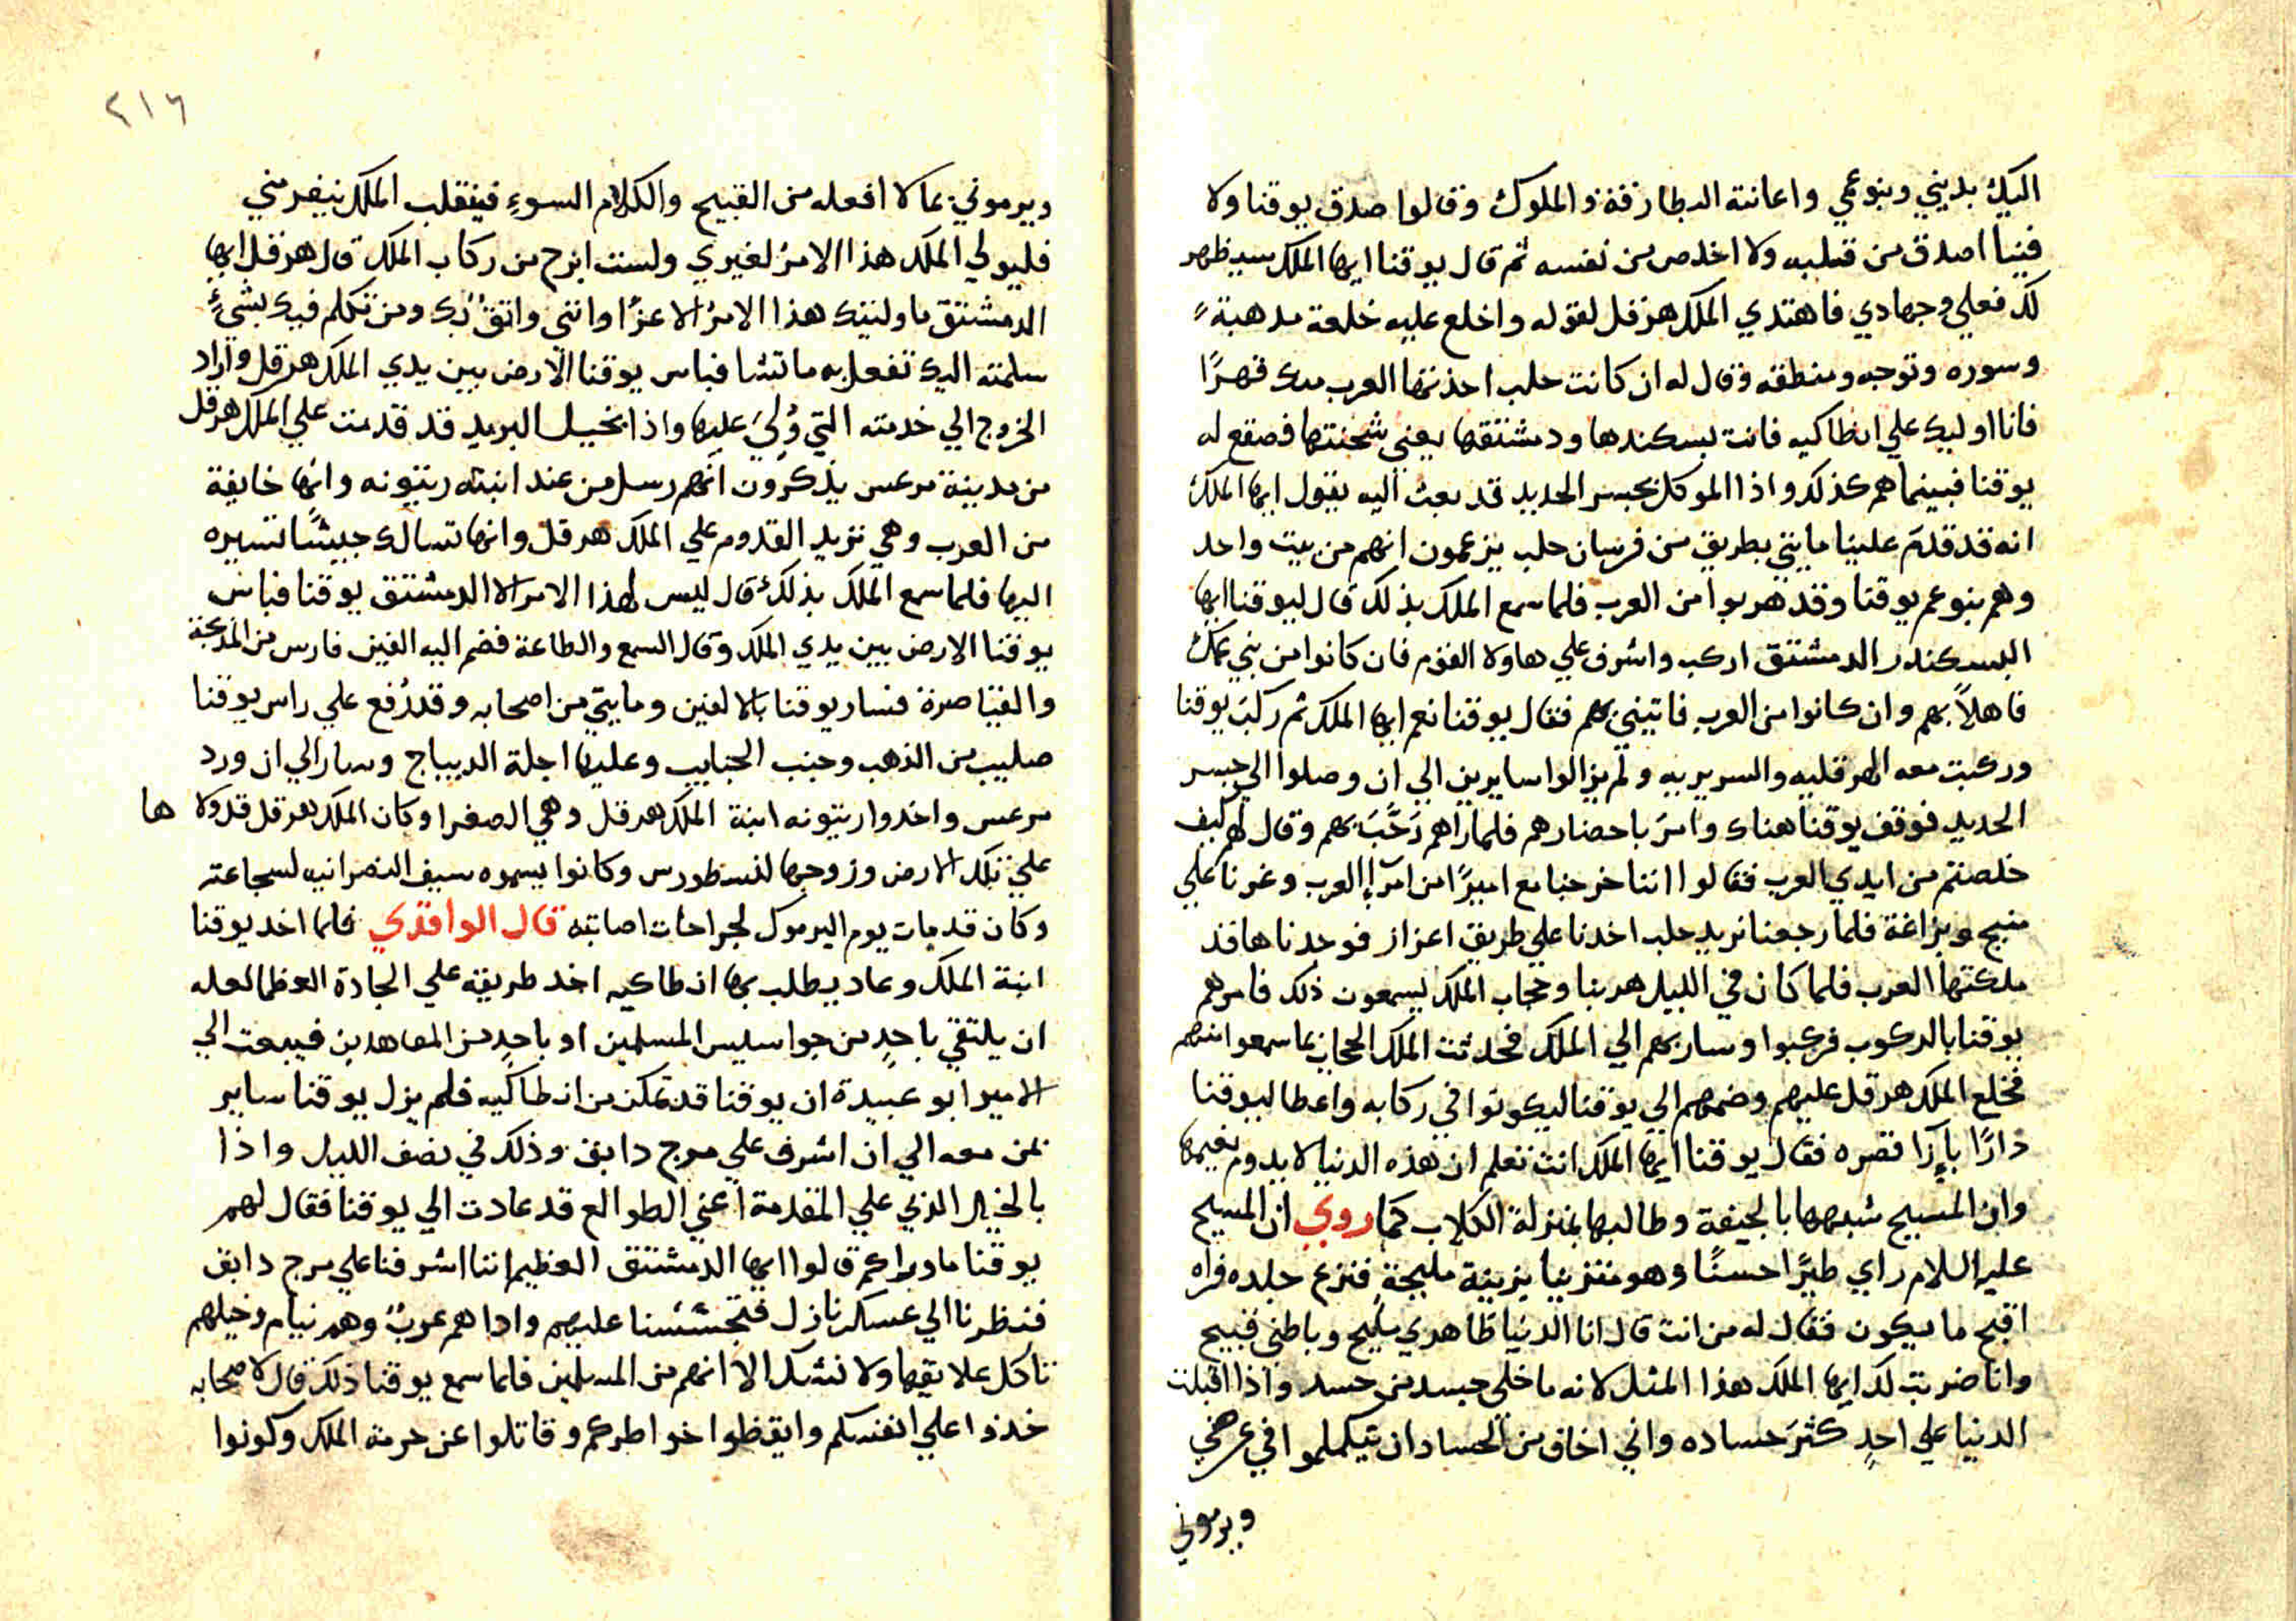 اليك بديني وبنو عمي واعانته البطارقة والملوك وقالوا صدق يوقنا ولا
فينا اصدق من قلبه ولا اخلص من نفسه ثم قال يوقنا ايها الملك سيظهر
لك فعلي وجهادي فاهتدي الملك هرقل لقوله واخلع عليه خلعة مدهبة
وسوره وتوجه ومنطقه وقال له ان كانت حلب اخذتها العرب منك قهرًا
فانا اوليك علي انطاكيه فانت بسكندها ودمشتقها يعني شحنتها فصقع له
يوقنا فبينما هم كذلك واذا الموكل بجسر الحديد قد بعث اليه يقول ايها الملك
انه قد قدم علينا مايتي بطريق من فرسان حلب يزعمون انهم من بيت واحد
وهم بنو عم يوقنا وقد هربوا من العرب فلما سمع الملك بذلك قال ليوقنا ايها
البسكندر الدمشتق اركب واشرف علي هاولا القوم فان كانوا من بني عمك
فاهلاً بهم وان كانوا من العرب فاتيني بهم فقال يوقنا نعم ايها الملك ثم ركب يوقنا
وركبت معه الهرقليه والسريريه ولم يزالوا سايرين الي ان وصلوا الي جسر
الحديد فوقف يوقنا هناك وامر باحضارهم فلما راهم رَحَّبَ بهم وقال لهم كيف
خلصتم من ايدي العرب فقالوا اننا خرجنا مع اميرًا من امرآء العرب وغرنا علي
منبج وبزاغة فلما رجعنا نريد حلب اخدنا علي طريق اعزاز فوجدناها قد
ملكتها العرب فلما كان في الليل هربنا وحجاب الملك يسمعون ذلك فامرهم
يوقنا بالركوب فركبوا وسار بهم الي الملك فحدثت الملك الحجاب بما سمعوا منهم
فخلع الملك هرقل عليهم وضمهم الي يوقنا ليكونوا في ركابه واعطا ليوقنا
دارًا بإزا قصره فقال يوقنا ايها الملك انت تعلم ان هذه الدنيا لا يدوم نعيمها
وان المسيح شبهها بالجيفة وطالبها بمنزلة الكلاب كما روي ان المسيح
عليه السلام راي طيرًا حسنًا وهو متزينا بزينة مليحةٍ فنزع جلده فراه
اقبح ما يكون فقال له من انت قال انا الدنيا ظاهري مليح وباطني قبيح
وانا ضربت لك ايها الملك هذا المثل لانه ما خلي جسد من حسد واذا اقبلت
الدنيا علي احدٍ كثرَ حساده واني اخاف من الحساد ان يتكلموا في عرضي
ويرموني
٢١٦
ويرموني بما لا افعله من القبيح والكلام السوء فينقلب الملك ينفر مني
فليولي الملك هذا الامرُ لغيري ولست ابرح من ركاب الملك قال هرقل ايها
الدمشتق ما وليتك هذا الامرُ الا عزًا وانني واثقٌ بك ومن تكلم فيك بشيءٍ
سلمته اليك تفعل به ما تشا فباس يوقنا الارض بين يدي الملك هرقل واراد
الخروج الي خدمته التي وُليَ عليها واذا بخيل البريد قد قدمت علي الملك هرقل
من مدينة مرعس يذكرون انهم رسل من عند ابنته زيتونه وانها خايفة
من العرب وهي تريد القدوم علي الملك هرقل وانها تسالك جيشًا تسيره
اليها فلما سمع الملك بذلك قال ليس لهذا الامر الا الدمشتق يوقنا فباس
يوقنا الارض بين يدي الملك وقال السمع والطاعة فضم اليه الفين فارس من المذبحة
والقياصرة فسار يوقنا بالالفين ومايتي من اصحابه وقد رُفع علي راس يوقنا
صليب من الذهب وجنب الجنايب وعليها اجلة الديباج وسار الي ان ورد
مرعس واخدوا زيتونه ابنة الملك هرقل وهي الصغرا وكان الملك هرقل قد ولا ها
علي تلك الارض وزوجها لنسطورس وكانوا يسموه سيف النصرانيه لسجاعته
وكان قد مات يوم اليرموك لجراحات اصابته قال الواقدي فلما اخد يوقنا
ابنة الملك وعاد يطلب بها انطاكيه اخد طريقه علي الجادة العظما لعله
ان يلتقي باحدٍ من جواسيس المسلمين او باحدٍ من المعاهدين فيبعت الي
الامير ابو عبيدة ان يوقنا قد تمكن من انطاكيه فلم يزل يوقنا ساير
بمن معه الي ان اشرف علي مرج دابق وذلك في نصف الليل واذا
بالخيل الذي علي المقدمة اعني الطوالع قد عادت الي يوقنا فقال لهم
يوقنا ما وراكم قالوا ايها الدمشتق العظيم اننا اشرفنا علي مرج دابق
فنظرنا الي عسكر نازل فتجسّسنا عليهم واداهم عربٌ وهم نيام وخيلهم
تاكل علايقها ولا نشك الا انهم من المسلمين فلما سمع يوقنا ذلك قال لاصحابه
خدوا علي انفسكم وايقظوا خواطركم وقاتلوا عن حرمة الملك وكونوا